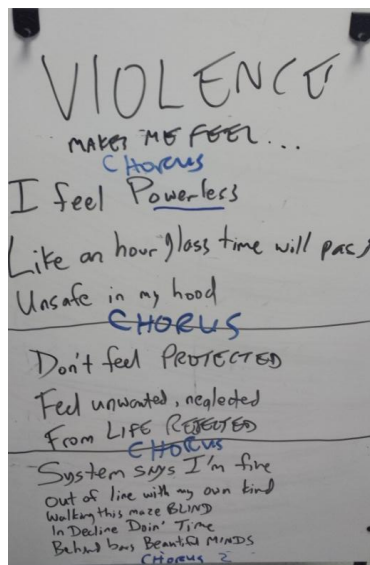 VIOLENCE
MAKES ME FEEL...
CHORUS
I feel Powerless
Like an hour glass time will pass
Unsafe in my hood
CHORUS
Don't feel PROTECTED
Feel unwanted, neglected
From LIFE REJECTED
CHORUS
System says I'm fine
out of line with my own kind
Walking this maze BLIND
In Decline Doin' Time
Behind bars Beautiful MINDS
CHORUS 2